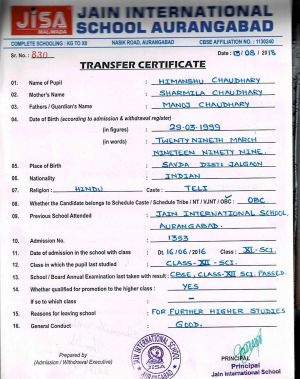 JAIN INTERNATIONAL
JiSA SCHOOL AURANGABAD
MALIWADA
COMPLETE SCHOOLING : KG TO XII NASIK ROAD, AURANGABAD CBSE AFFILIATION NO. : 1130240
Sr. No. : 830 Date : 13/08/2018
TRANSFER CERTIFICATE
01. Name of Pupil : HIMANSHU CHAUDHARY
02. Mother's Name : SHARMILA CHAUDHARY
03. Fathers / Guardian's Name : MANOJ CHAUDHARY
04. Date of Birth (according to admission & withdrawal register)
(in figures) : 29-03-1999
(in words) : TWENTY NINETH MARCH
NINETEEN NINETY NINE.
05. Place of Birth : SAVDA DIST: JALGAON
06. Nationality : INDIAN
07. Religion : HINDU Caste : TELI
08. Whether the Candidate belongs to Schedule Caste / Schedule Tribe / NT / VJNT / OBC : OBC
09. Previous School Attended : JAIN INTERNATIONAL SCHOOL,
AURANGABAD.
10. Admission No. : 1353
11. Date of admission in the school with class : Dt. 16/06/2016 Class : XI-SCI.
12. Class in which the pupil last studied : CLASS-XII-SCI.
13. School / Board Annual Examination last taken with result : CBSE, CLASS-XII SCI. PASSED
14. Whether qualified for promotion to the higher class : YES
If so to which class : —
15. Reasons for leaving school : FOR FURTHER HIGHER STUDIES
16. General Conduct : GOOD.
Prepared by
(Admission / Withdrawal Executive)
JAIN INTERNATIONAL SCHOOL
JISA
PRINCIPAL
Principal
Jain International School